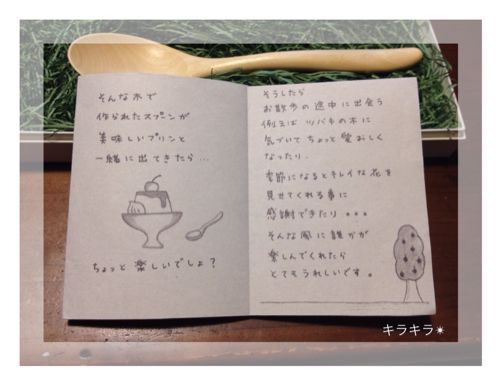 そんな木で
作られたスプンが
美味しいプリンと
一緒に出てきたら…
ちょっと楽しいでしょ？
そうしたら
お散歩の途中に出会う
例えば ツバキの木に
気づいて ちょっと愛おしく
なったり、
季節になるとキレイな花を
見せてくれる事に
感謝できたり。。。
そんな風に誰かが
楽しんでくれたら
とてもうれしいです。
キラキラ✴